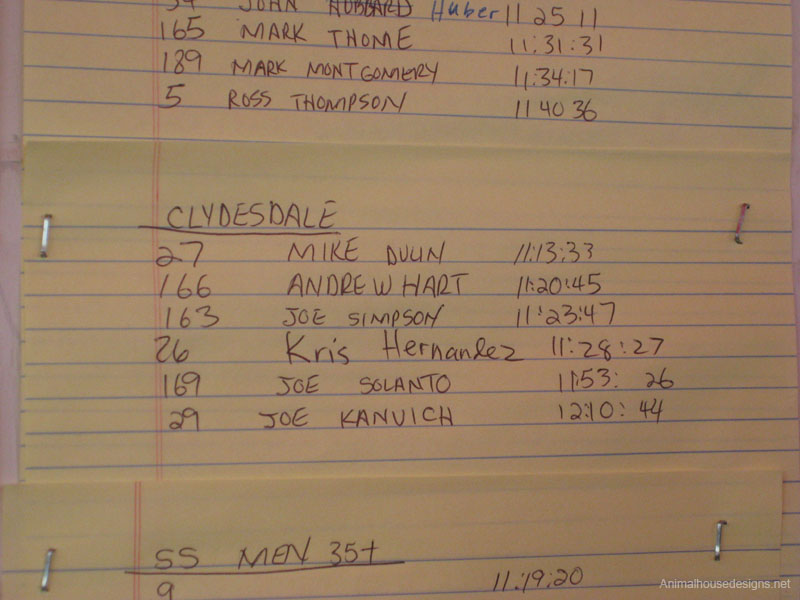 JOHN HUBBARD Huber 11 25 11
165 MARK THOME 11:31:31
189 MARK MONTGOMERY 11:34:17
5 ROSS THOMPSON 11 40 36
CLYDESDALE
27 MIKE DULIN 11:13:33
166 ANDREW HART 11:20:45
163 JOE SIMPSON 11:23:47
26 Kris Hernandez 11:28:27
169 JOE SOLANTO 11:53: 26
29 JOE KANVICH 12:10: 44
SS MEN 35+
9 11:19:20
Animalhousedesigns.net